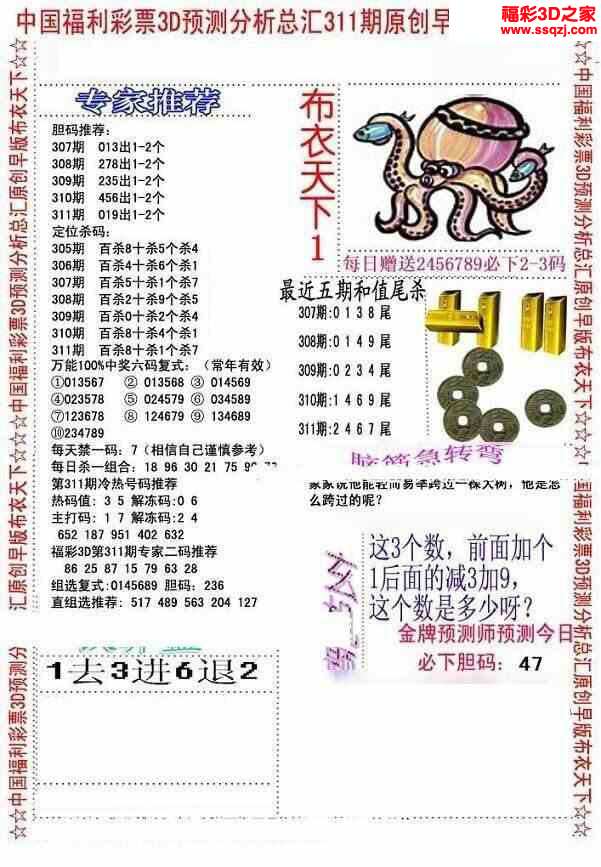 中国福利彩票3D预测分析总汇311期原创早
福彩3D之家
www.ssqzj.com
专家推荐
胆码推荐:
307期 013出1-2个
308期 278出1-2个
309期 235出1-2个
310期 456出1-2个
311期 019出1-2个
定位杀码:
305期 百杀8十杀5个杀4
306期 百杀4十杀6个杀1
307期 百杀5十杀1个杀7
308期 百杀2十杀9个杀5
309期 百杀0十杀2个杀4
310期 百杀8十杀4个杀1
311期 百杀8十杀1个杀7
万能100%中奖六码复式:（常年有效）
①013567 ②013568 ③014569
④023578 ⑤024579 ⑥034589
⑦123678 ⑧124679 ⑨134689
⑩234789
每天禁一码: 7（相信自己谨慎参考）
每日杀一组合: 18 96 30 21 75
第311期冷热号码推荐
热码值: 3 5 解冻码:0 6
主打码: 1 7 解冻码:2 4
652 187 951 402 632
福彩3D第311期专家二码推荐
86 25 87 15 79 63 28
组选复式:0145689 胆码: 236
直组选推荐: 517 489 563 204 127
1去3进6退2
布衣天下1
每日赠送2456789必下2-3码
最近五期和值尾杀
307期:0 1 3 8 尾
308期:0 1 4 9 尾
309期:0 2 3 4 尾
310期:1 4 6 9 尾
311期:2 4 6 7 尾
脑筋急转弯
家家说他能轻而易举跨过一棵大树，他是怎
么跨过的呢?
这3个数，前面加个
1后面的减3加9，
这个数是多少呀?
金牌预测师预测今日
必下胆码: 47
☆☆中国福利彩票3D预测分析总汇原创早版布衣天下☆☆
☆☆中国福利彩票3D预测分
汇原创早版布衣天下☆☆中国福利彩票3D预测分析总汇原创早版布衣天下☆☆